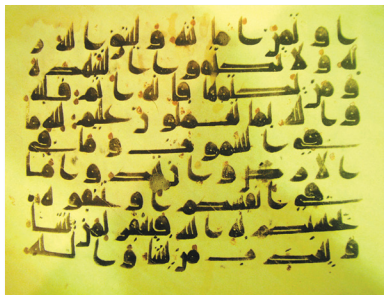 اوتمن امانته وليتق الله ر
به ولا تكتموا الشهده
ومن يكتمها فانه اثم قلبه
والله بما تعملون عليم لله ما
في السموت وما في
الارض وان تبدوا ما
في انفسكم او تخفوه
يحسبكم به الله فيغفر لمن يشا
ويعذب من يشا والله